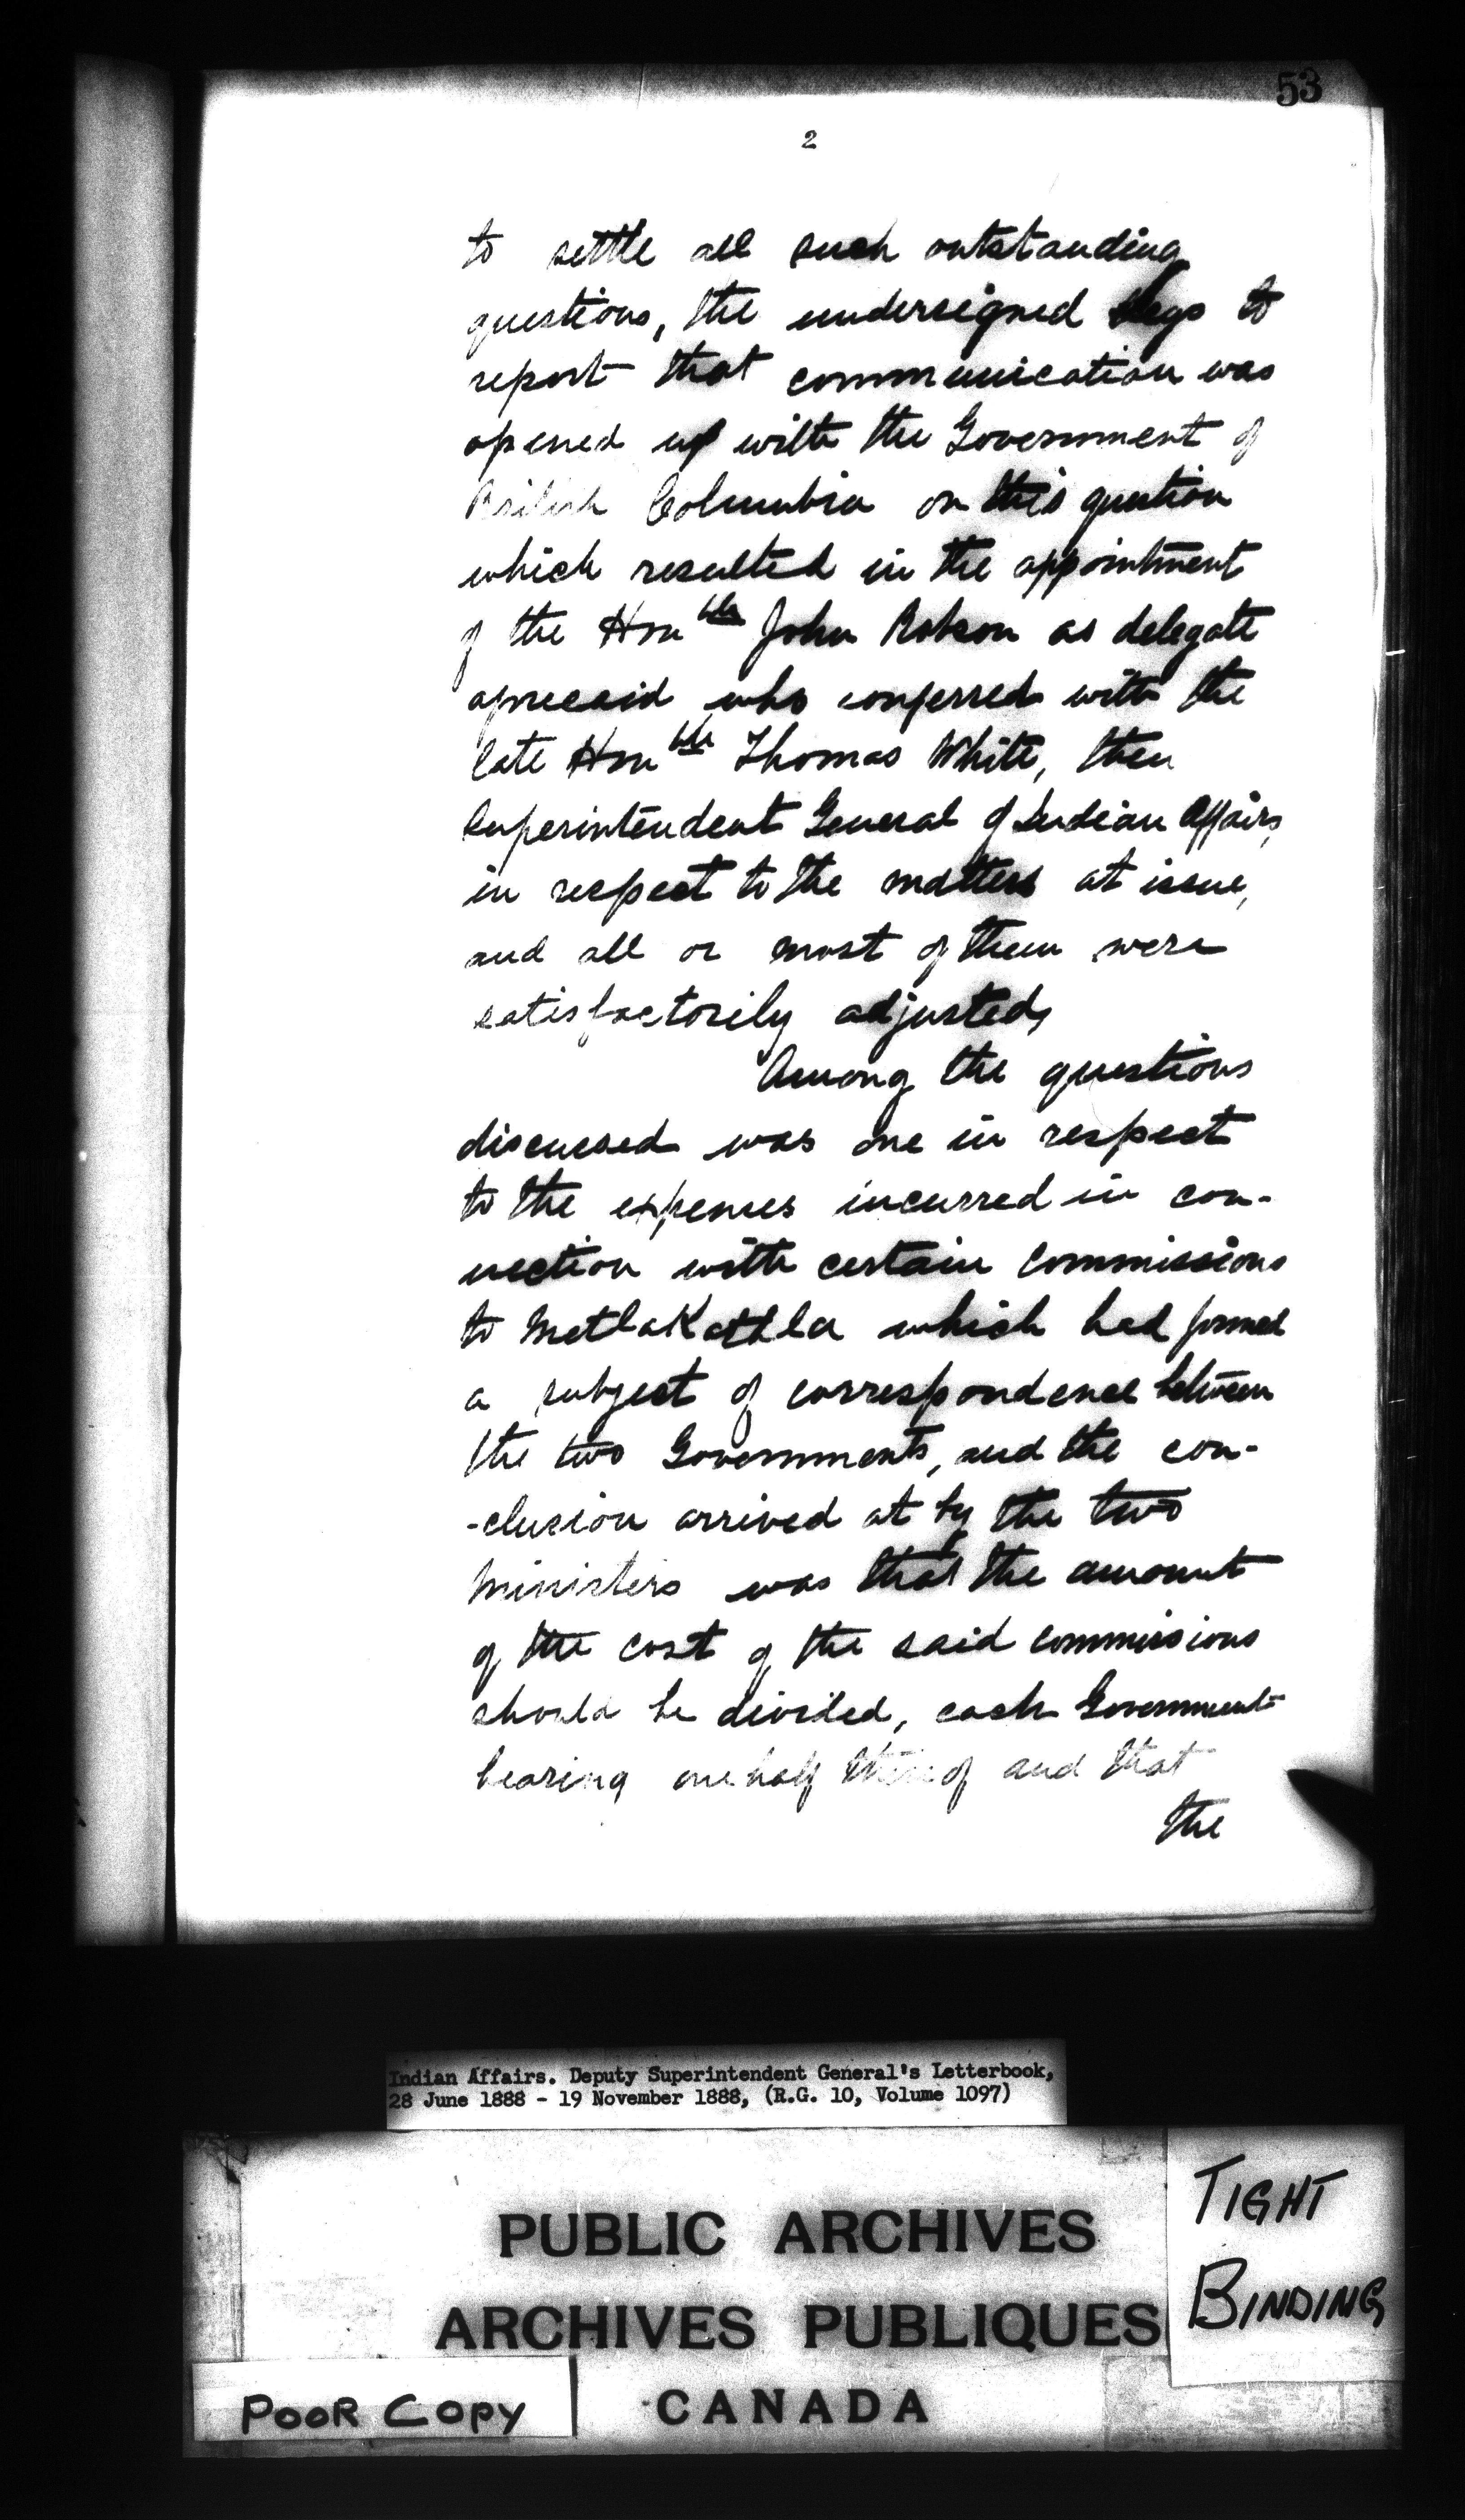 53
2
to settle all such outstanding
questions, the undersigned begs to
report that communication was
opened up with the Government of
British Columbia on this question
which resulted in the appointment
of the Honble John Robson as delegate
aforesaid who conferred with the
late Honble Thomas White, then
Superintendent General of Indian Affairs,
in respect to the matters at issue,
and all or most of them were
satisfactorily adjusted,
Among the questions
discussed was one in respect
to the expenses incurred in con-
nection with certain Commissions
to Metlakathla which had formed
a subject of correspondence between
the two Governments, and the con-
-clusion arrived at by the two
Ministers was that the amount
of the cost of the said commissions
should be divided, each Government
bearing one half thereof and that
the
Indian Affairs. Deputy Superintendent General's Letterbook,
28 June 1888 - 19 November 1888, (R.G. 10, Volume 1097)
PUBLIC ARCHIVES
ARCHIVES PUBLIQUES
CANADA
TIGHT
BINDING
POOR COPY